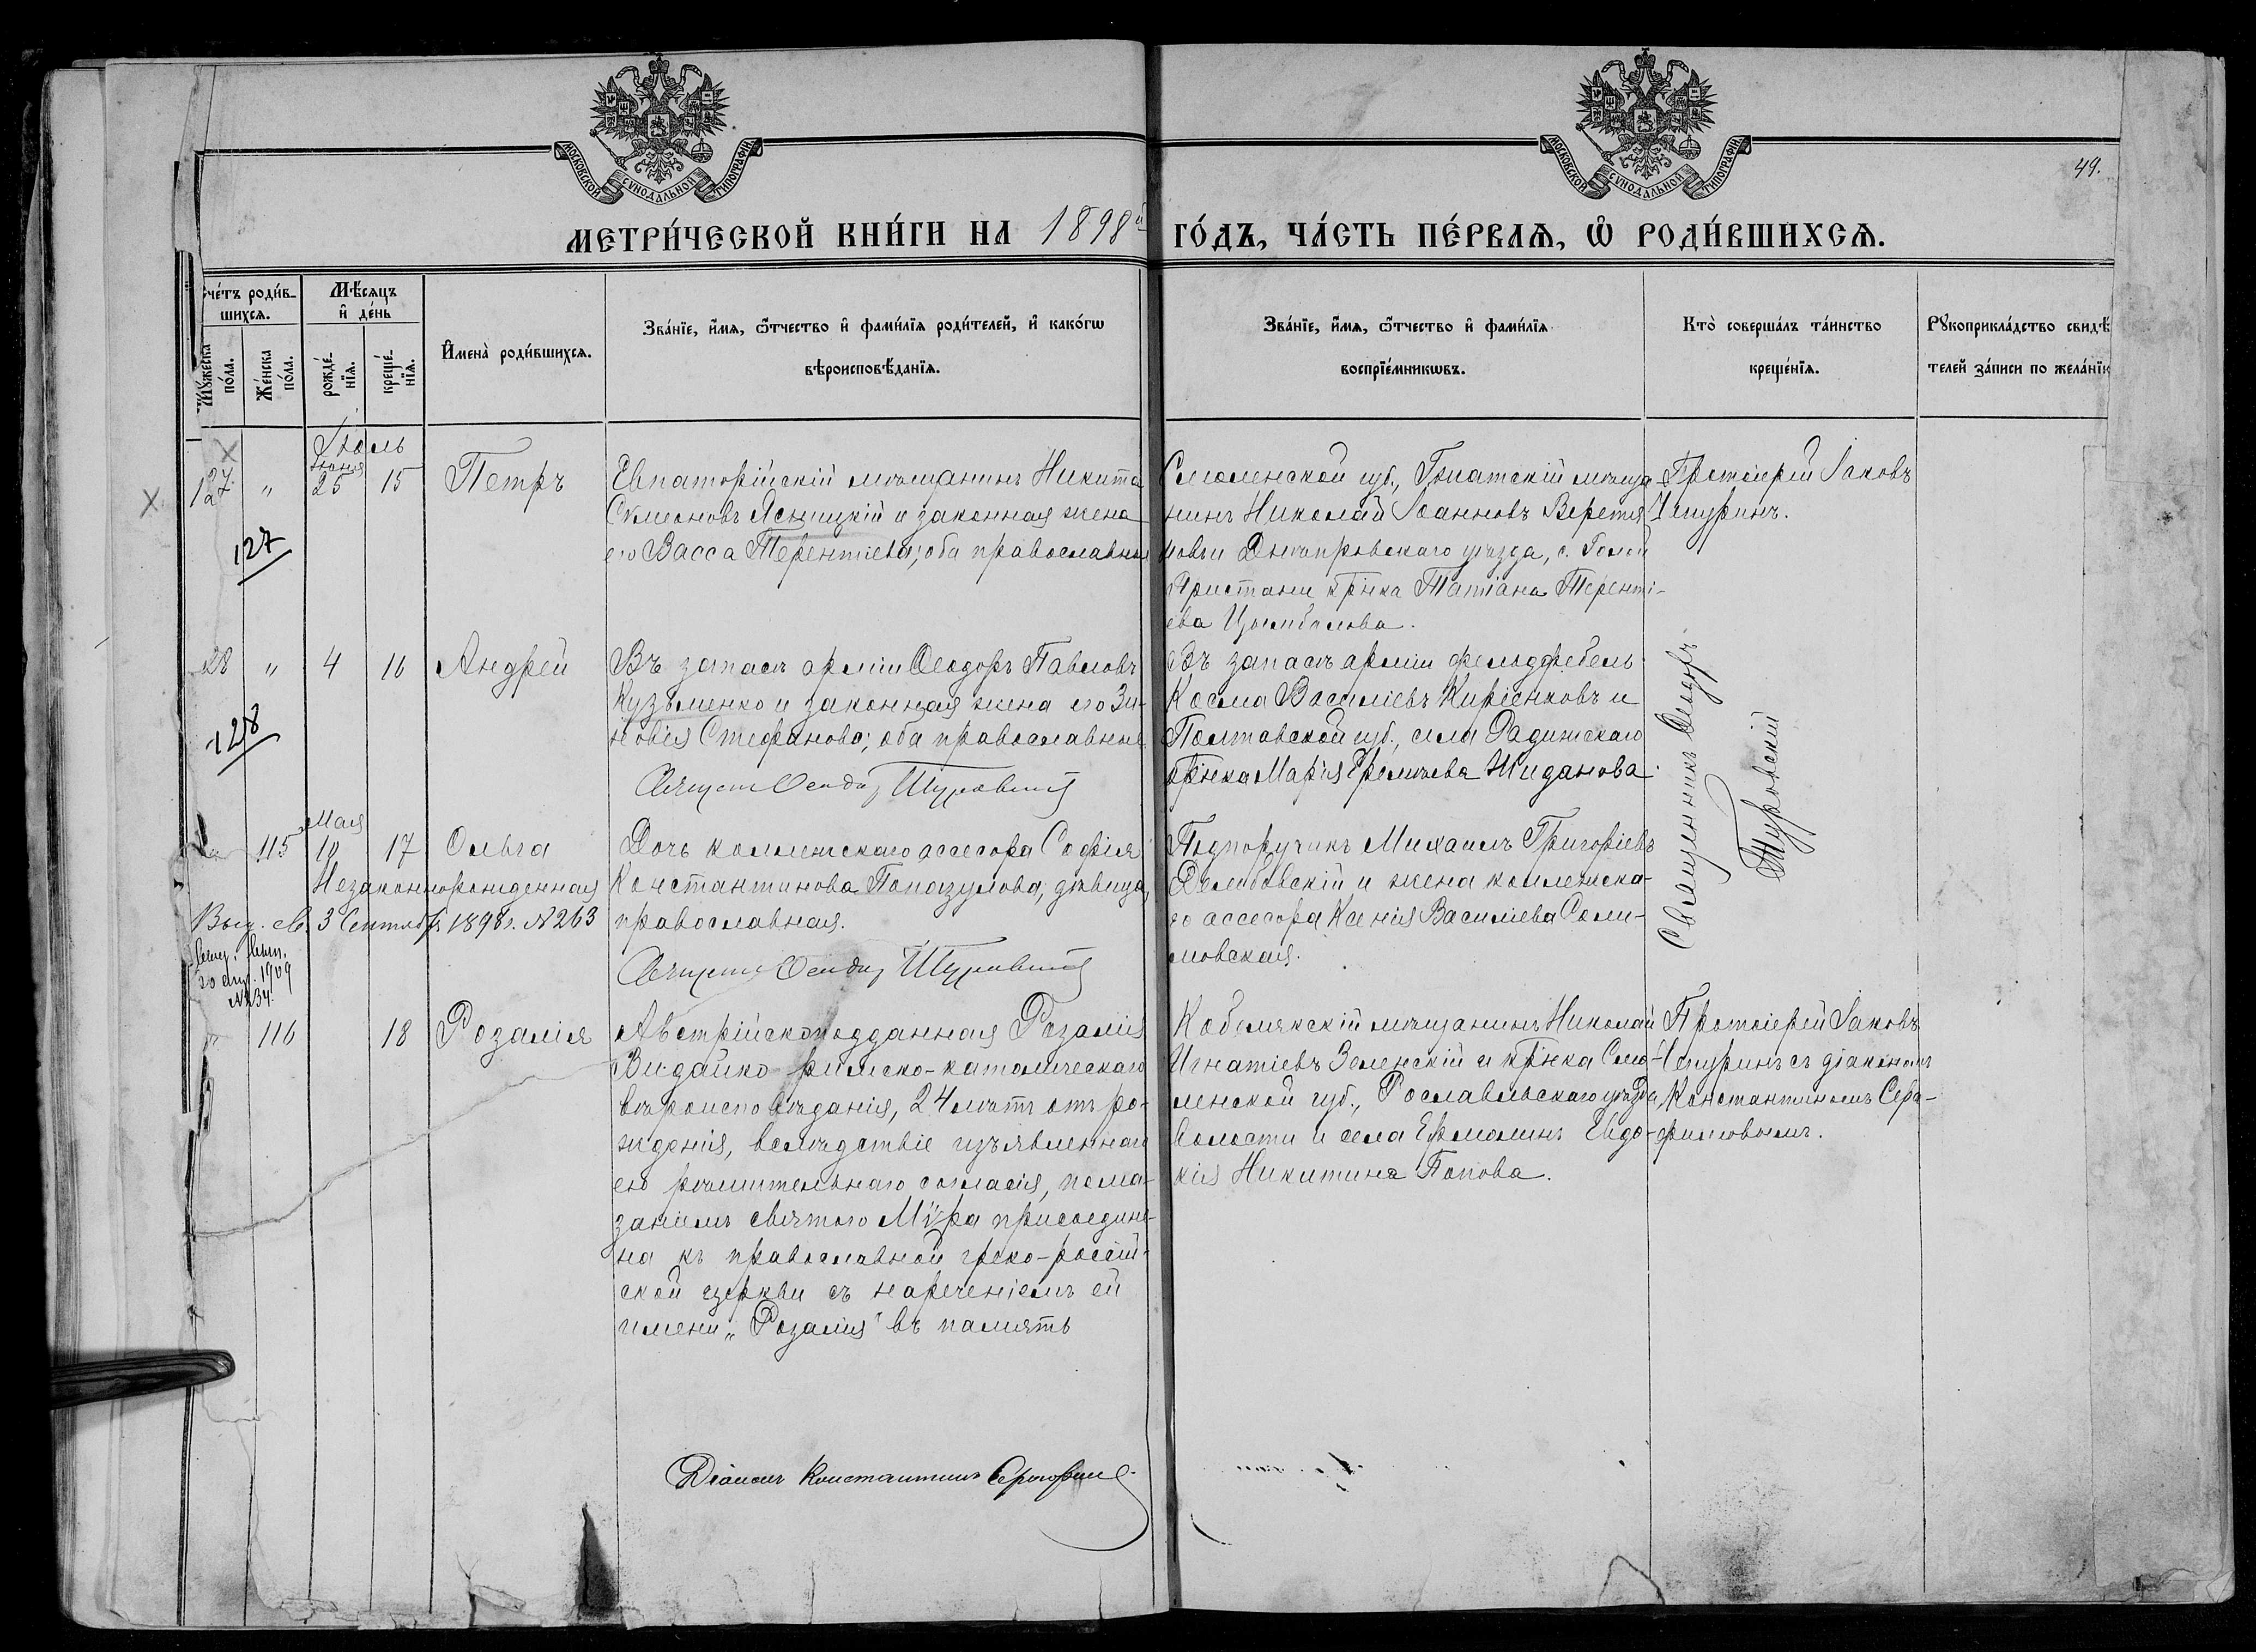 МОСКОВСКОЙ СѴНОДАЛЬНОЙ ТИПОГРАФІИ
МОСКОВСКОЙ СѴНОДАЛЬНОЙ ТИПОГРАФІИ
49.
МЕТРИ́ЧЕСКОЙ КНИ́ГИ НА 1898й ГО́ДЪ, ЧА́СТЬ ПЕ́РВАѦ, Ѿ РОДИ́ВШИХСѦ.
счетъ роди́в-
шихсѧ.
Мꙋжеска по́ла.
Же́нска по́ла.
Мѣ́сѧцъ и де́нь
рожде́-нїѧ.
креще́-нїѧ.
Имена̀ роди́вшихсѧ.
Зва́нїе, и́мѧ, ѻ҆́тчество и фами́лїѧ роди́телей, и како́гѡ
вѣроисповѣ́данїѧ.
Зва́нїе, и́мѧ, ѻ҆́тчество и фами́лїѧ
воспрїе́мникѡвъ.
Кто̀ соверша́лъ та́инство
креще́нїѧ.
Рꙋкоприкла́дство свидѣ́
телей за́писи по жела́нїю
Іюль
127. " Іюня 25 15 Петръ
127
Евпаторійскій мѣщанинъ Никита
Симеоновъ Ясницкій и законная жена
его Васса Терентіева; оба православные
Смоленской губ., Гжатскій мѣща-
нинъ Николай Іоанновъ Веретен-
никовъ и Днѣпровскаго уѣзда, с. Голой
Пристани кр-нка Татіана Теренті-
ева Цымбалова.
Протоіерей Іаковъ
Чепуринъ.
28 " 4 16 Андрей
128
Въ запасѣ арміи Ѳеодоръ Павловъ
Кузьменко и законная жена его Зи-
новія Стефанова; оба православные
Священ Ѳеодор Туровскій
Въ запасѣ арміи фельдфебель
Косма Василіевъ Киріенковъ и
Полтавской губ., села
кр-нка Марія Жиданова.
Священникъ Ѳеодоръ
Туровскій
115 Мая 10 17 Ольга
Незаконнорожденная
Выд. св. 3 Сентябр. 1898 г. №263
20 авг. 1909
№ 234.
Дочь коллежскаго ассесора Софія
Константинова Попазулова, дѣвица,
православная.
Священ Ѳеодор Туровскій
Подпоручикъ Михаилъ Григоріевъ
и жена коллежска-
го ассесора Ксенія Василіева Соли-
мовская.
" 116 18 Розалія
Австрійскоподданная Розалія
Видайко римско-католическаго
вѣроисповѣданія, 24 лѣтъ отъ ро-
жденія, вслѣдствіе изъявленнаго
ею рѣшительнаго согласія, пома-
заніемъ святого Мѵра присоедине-
на къ православной греко-россій-
ской церкви съ нареченіемъ ей
имени „Розалія" въ память
Кобелякскій мѣщанинъ Николай
Игнатіевъ Зеленскій и кр-нка Смо-
ленской губ., Рославльскаго уѣзда,
волости и села Ермолинъ Евдо-
кія Никитина Попова.
Протоіерей Іаковъ
Чепуринъ съ діакономъ
Константиномъ Сера-
фимовымъ.
Діаконъ Константинъ Серафимов